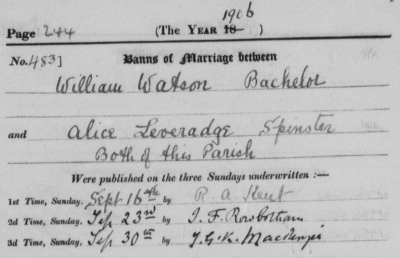 1906
Page 244 (The YEAR 18 )
No. 483] Banns of Marriage between
William Watson Bachelor
and Alice Leveradge Spinster
Both of this Parish
Were published on the three Sundays underwritten :—
1st Time, Sunday, Sept 16th by R. A. Kent
2d Time, Sunday, Sep 23rd by J. F. Rowbotham
3d Time, Sunday, Sep 30th by J. G. K. Mackenzie